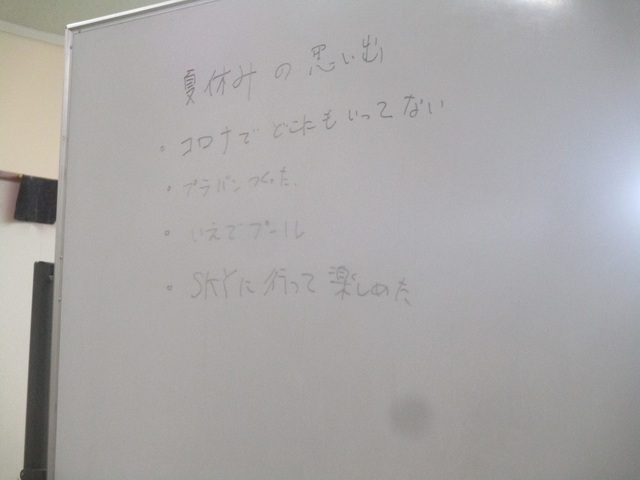 夏休みの思い出
・コロナでどこにもいってない
・プラバンつくった.
・いえでプール
・SKYに行って楽しめた